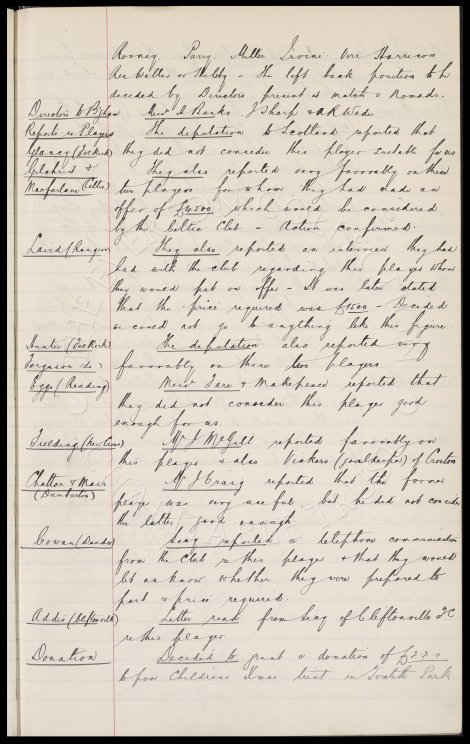 Rooney Parry Miller Irvine Virr Harrison
Ree Weller or Hebby - The left back position to be
decided by Directors present at match v Nomads.
Directors to B'ham Messrs A Banks, J Sharp & A R Wade
Reports re Players The deputation to Scotland reported that
Glancy (Falkirk) they did not consider this player suitable for us
Gilchrist & They also reported very favorably on these
Macfarlane (Celtic) two players for whom they had made an
offer of £4500 which would be considered
by the Celtic Club - Action confirmed.
Laird (Rangers) They also reported an interview they had
had with the club regarding this player whom
they would put on offer - It was later stated
that the price required was £1500 - Decided
we could not go to anything like this figure.
Hunter (Falkirk) The deputation also reported very
Ferguson do favorably on these two players
Eggo (Reading) Messrs Sare & Makepeace reported that
they did not consider this player good
enough for us.
Fielding (New Cross) Mr J McGill reported favorably on
this player & also Vickers (goalkeeper) of Croston
Chatton & Mair Mr J Craig reported that the former
(Dumbarton) player was very useful but he did not consider
the latter good enough
Cowan (Dundee) Secy reported a telephone communication
from the Club re this player & that they would
let us know whether they were prepared to
part & price required.
Addis (Cliftonville) Letter read from Secy of Cliftonville FC
re this player
Donation Decided to grant a donation of £2.2.0
to poor Childrens Xmas treat in Toxteth Park